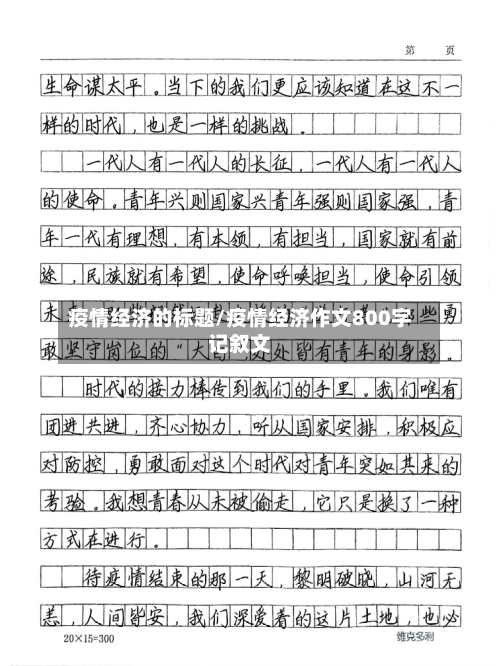 第 页
生命谋太平。当下的我们更应该知道在这不一
样的时代，也是一样的挑战。
一代人有一代人的长征，一代人有一代人
的使命。青年兴则国家兴青年强则国家强，青
年一代有理想，有本领，有担当，国家就有前
途，民族就有希望，使命呼唤担当，使命引领
未
些勇
疫情经济的标题/疫情经济作文800字
记叙文
敢坚守岗位的“大
处处皆有青年的身影。
时代的接力棒传到我们的手里。我们唯有
团进共进，齐心协力，听从国家安排，积极应
对防控，勇敢面对这个时代对青年突如其来的
考验。我想青春从未被偷走，它只是换了一种
方式在进行。
待疫情结束的那一天，黎明破晓，山河无
恙，人间皆安，我们深爱着的这片土地，也必
20×15=300
维克多利